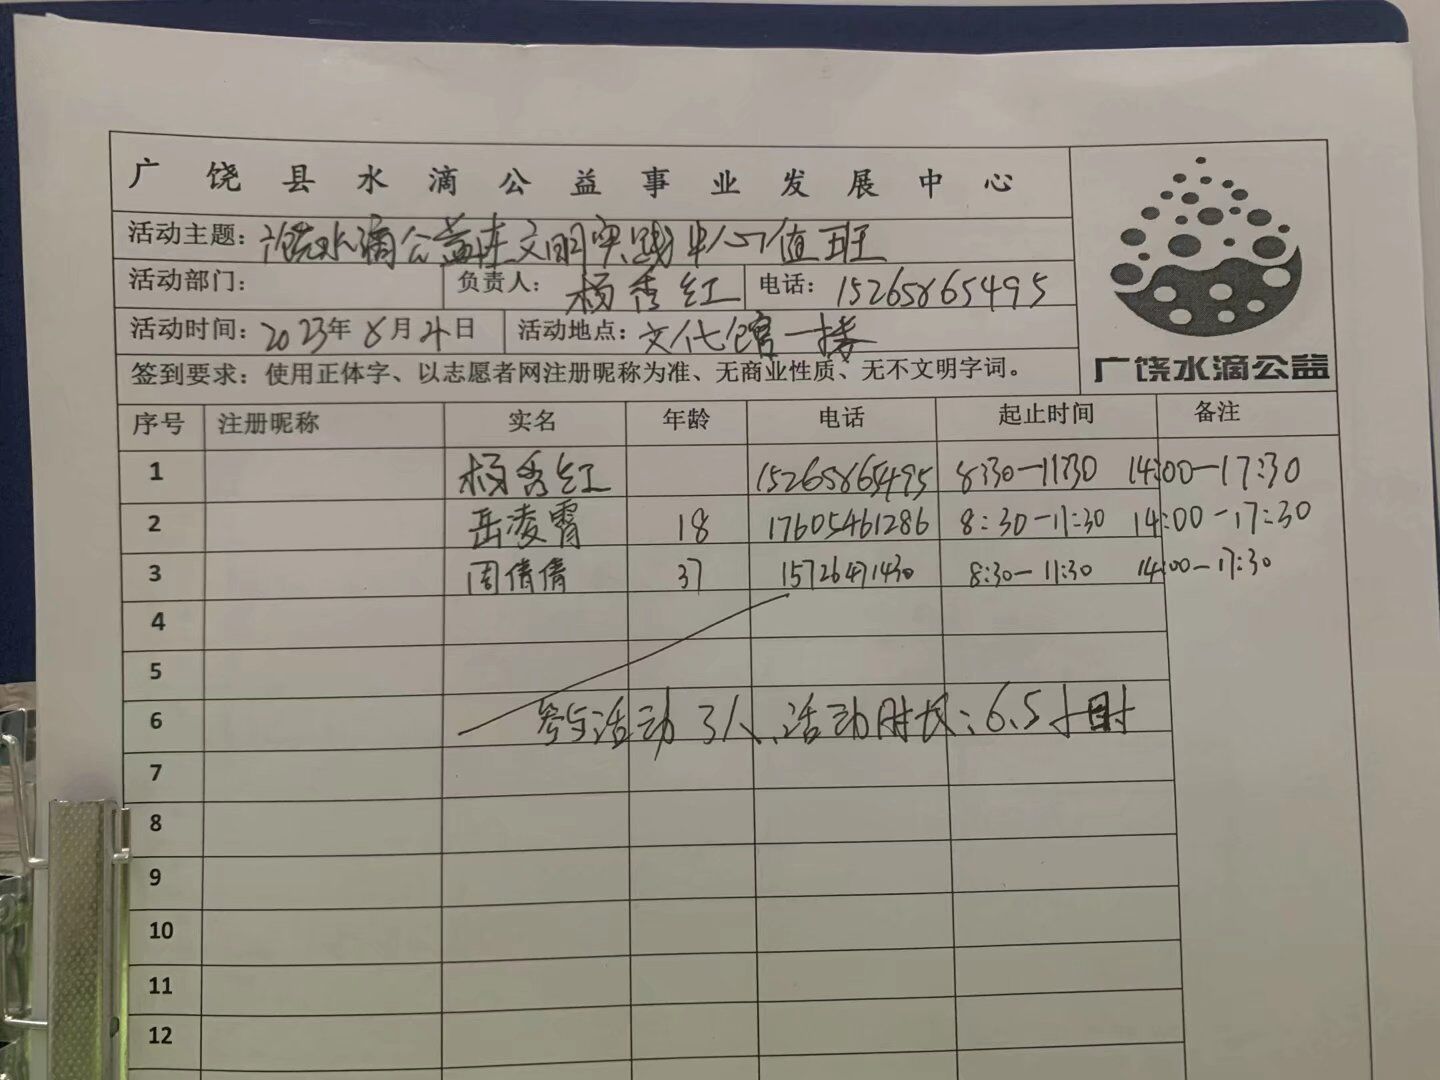 广饶县水滴公益事业发展中心
活动主题：广饶水滴公益在文明实践中心值班
活动部门： 负责人：杨秀红 电话：15265865495
活动时间：2023年8月21日 活动地点：文化馆一楼
签到要求：使用正体字、以志愿者网注册昵称为准、无商业性质、无不文明字词。
广饶水滴公益
序号 注册昵称 实名 年龄 电话 起止时间 备注
1 杨秀红 15265865495 8:30-11:30 14:00-17:30
2 岳凌霄 18 17605461286 8:30-11:30 14:00-17:30
3 周倩倩 37 15726471430 8:30-11:30 14:00-17:30
4
5
6 参与活动3人、活动时长：6.5小时
7
8
9
10
11
12